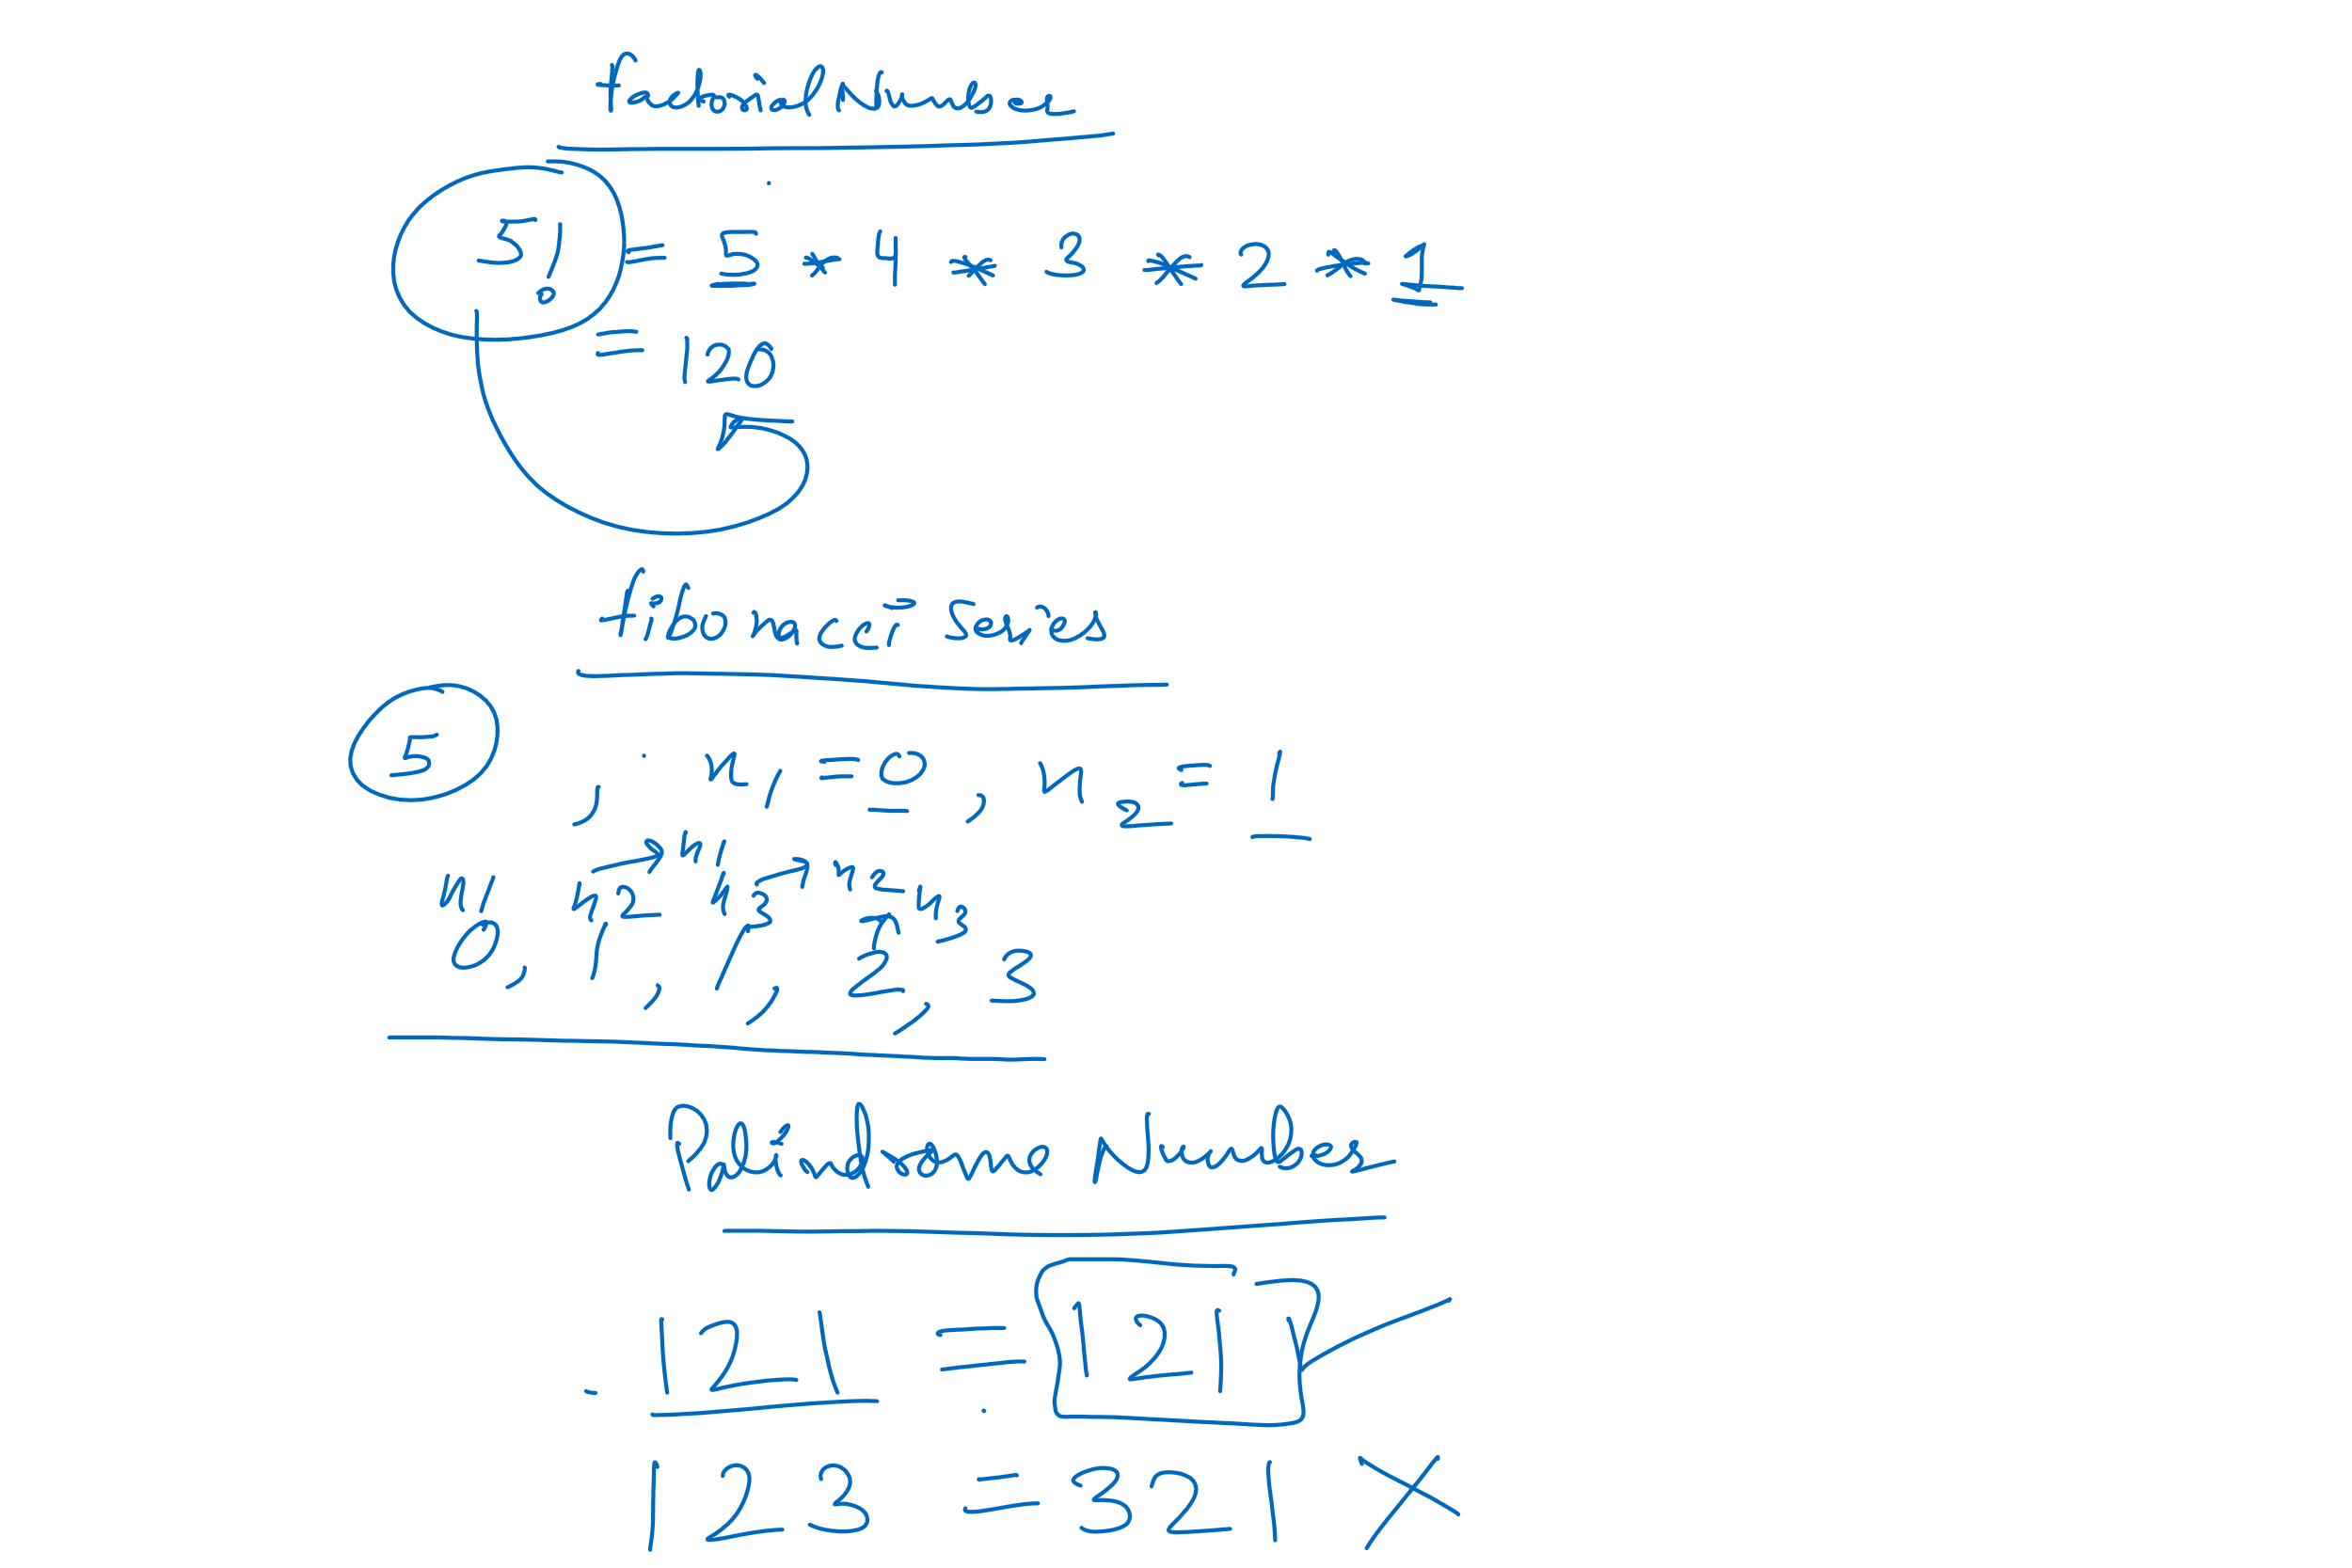 Factorial Number
5! = 5 * 4 * 3 * 2 * 1
= 120
fibonacci Series
5 , n1 = 0 , n2 = 1
n1 n2
n1 n2 n3 n3
0, 1, 1, 2, 3
Palindrome Number
121 = 121
123 = 321 X